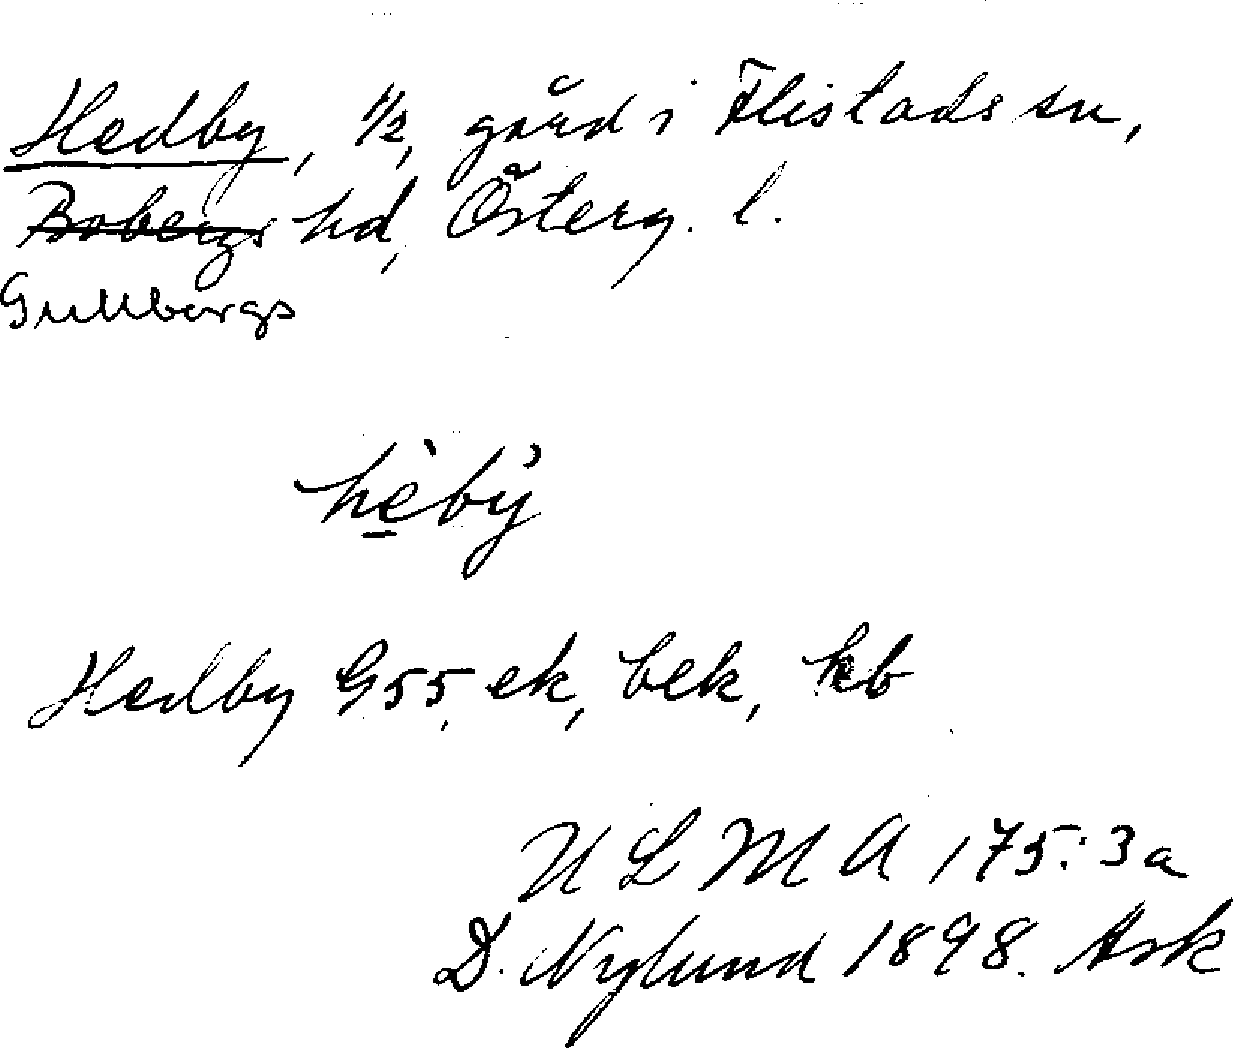 Hedby, 1/2, gård i Flistads sn,
Bobergs hd, Österg. l.
Gullbergs
hèbý
Hedby G55, ek, bek, kb
ULMA 175:3a
D. Nylund 1898. Ask